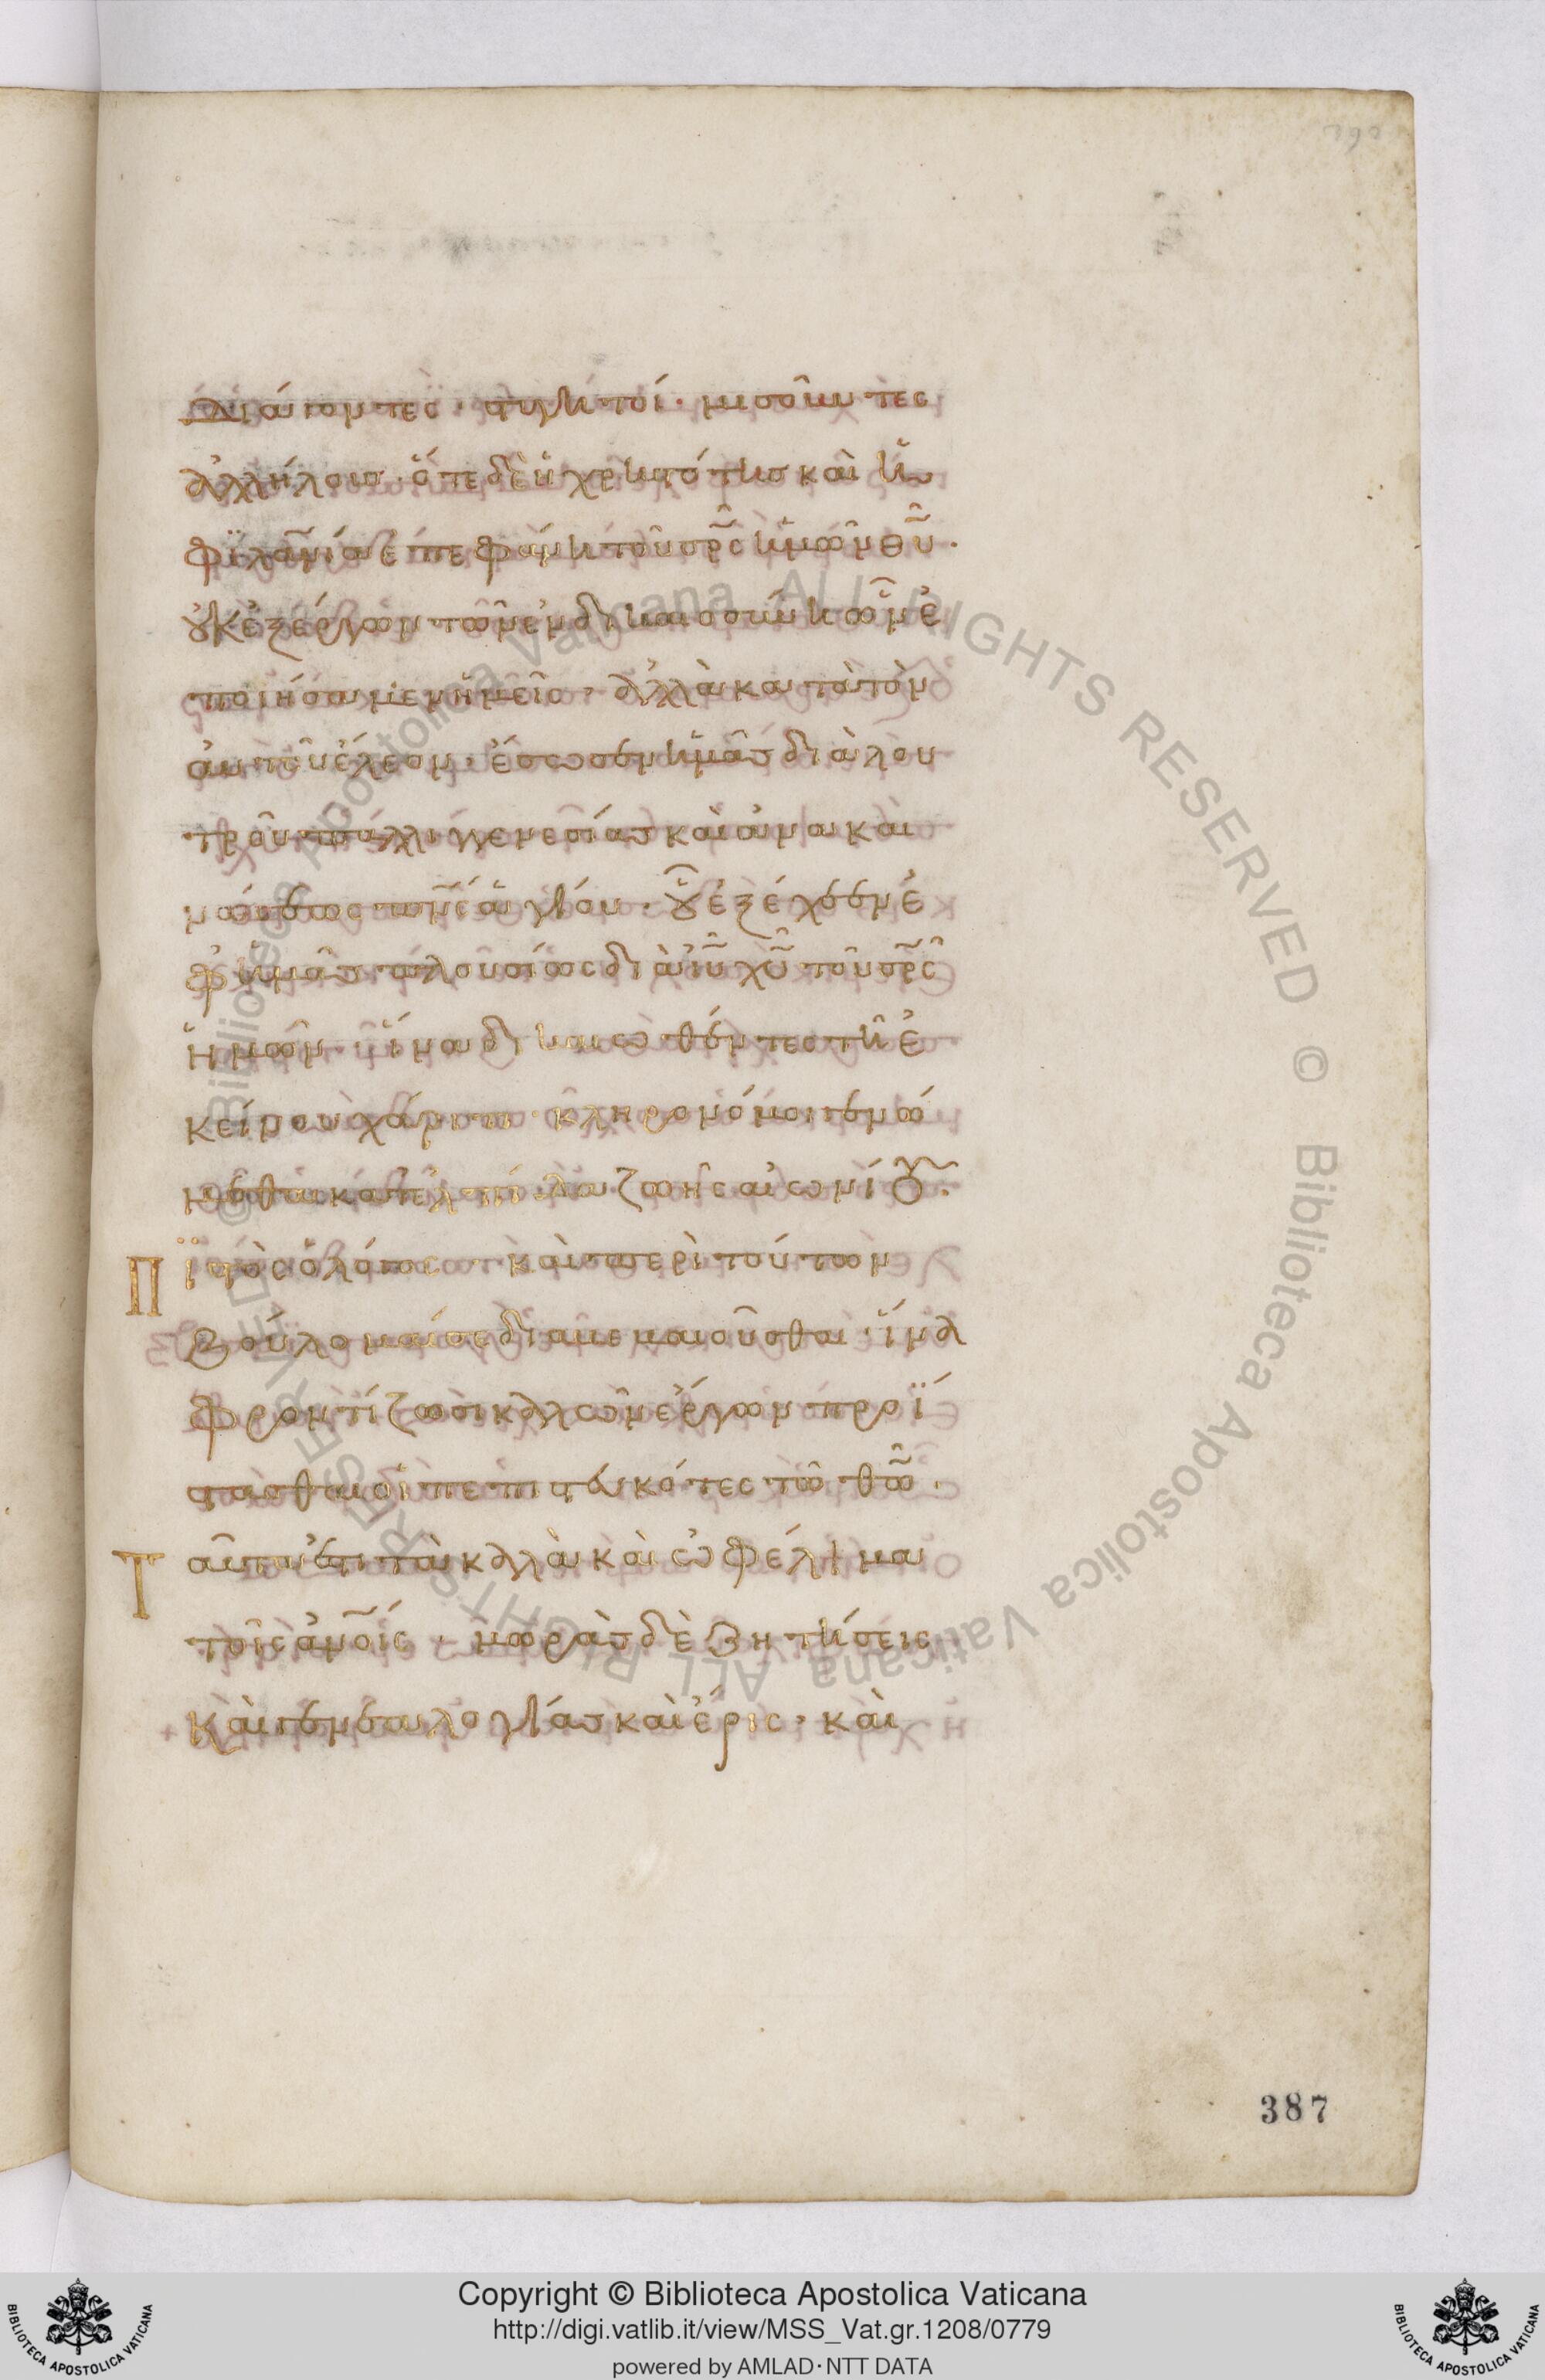 διάγοντες· στυγητοί· μισοῦντες
ἀλλήλους· ὅτε δὲ ἡ χρηστότης καὶ ἡ
φϊλαν̅ία ἐπεφάνη τοῦ σρ̅ς ἡμῶν θυ̅·
οὐκ ἐξ ἔργων τῶν ἐν δικαιοσύνη ὧν ἐ
ποιήσαμεν ἡμεῖς· ἀλλὰ κατὰ τὸν
αὐτοῦ ἔλεον· ἔσωσεν ἡμᾶς διὰ λου
τροῦ παλιγγενεσίας καὶ ἀνακαι
νώσεως πν̅ς ἁγίου· οὗ ἐξέχεεν ἐ
φ ἡμᾶς πλουσίως διὰ ιυ̅ χυ̅ τοῦ σρ̅ς
ἡμῶν· ἵνα δικαιωθέντες τῆ ἐ
κείνου χάριτι· κληρονόμοι γενώ
μεθα κατ ἐλπίδα ζωῆς αἰωνίου·
Πϊστὸς ὁ λόγος· καὶ περὶ τούτων
βούλομαί σε διαβεβαιοῦσθαι· ἵνα
φροντίζωσι καλῶν ἔργων προΐ
στασθαι οἱ πεπιστευκότες τῶ θω̅·
Ταῦτά ἐστι τὰ καλὰ καὶ ὠφέλιμα
τοῖς αν̅οις· μωρὰς δὲ ζητήσεις
καὶ γενεαλογίας καὶ ἔρις· καὶ
387
Copyright © Biblioteca Apostolica Vaticana
http://digi.vatlib.it/view/MSS_Vat.gr.1208/0779
powered by AMLAD·NTT DATA
BIBLIOTECA APOSTOLICA VATICANA
BIBLIOTECA APOSTOLICA VATICANA
© Biblioteca Apostolica Vaticana ALL RIGHTS RESERVED
© Biblioteca Apostolica Vaticana ALL RIGHTS RESERVED